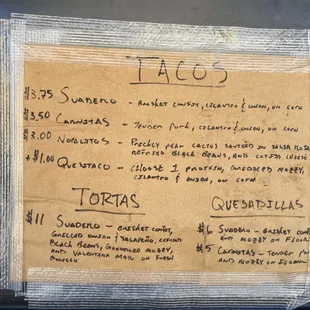 TACOS
$3.75 SUADERO - BRISKET CONFIT, CILANTRO & ONION, ON CORN
$3.50 CARNITAS - TENDER PORK, CILANTRO & ONION, ON CORN
$3.00 NOPALITOS - PRICKLY PEAR CACTUS SAUTEED IN SALSA ROJA
REFRIED BLACK BEANS, AND COTIJA CHEESE
+$1.00 QUESITACO - CHOOSE 1 PROTEIN, GRIDDLED MOZZY,
CILANTRO & ONION, ON CORN
TORTAS
$11 SUADERO - BRISKET CONFIT,
GRILLED ONION & JALAPEÑO, REFRIED
BLACK BEANS, GRIDDLED MOZZY,
AND VALENTINA MAYO ON FRESH
QUESADILLAS
$6 SUADERO - BRISKET CONFIT
AND MOZZY ON FLOUR
$5 CARNITAS - TENDER PORK
AND MOZZY ON FLOUR